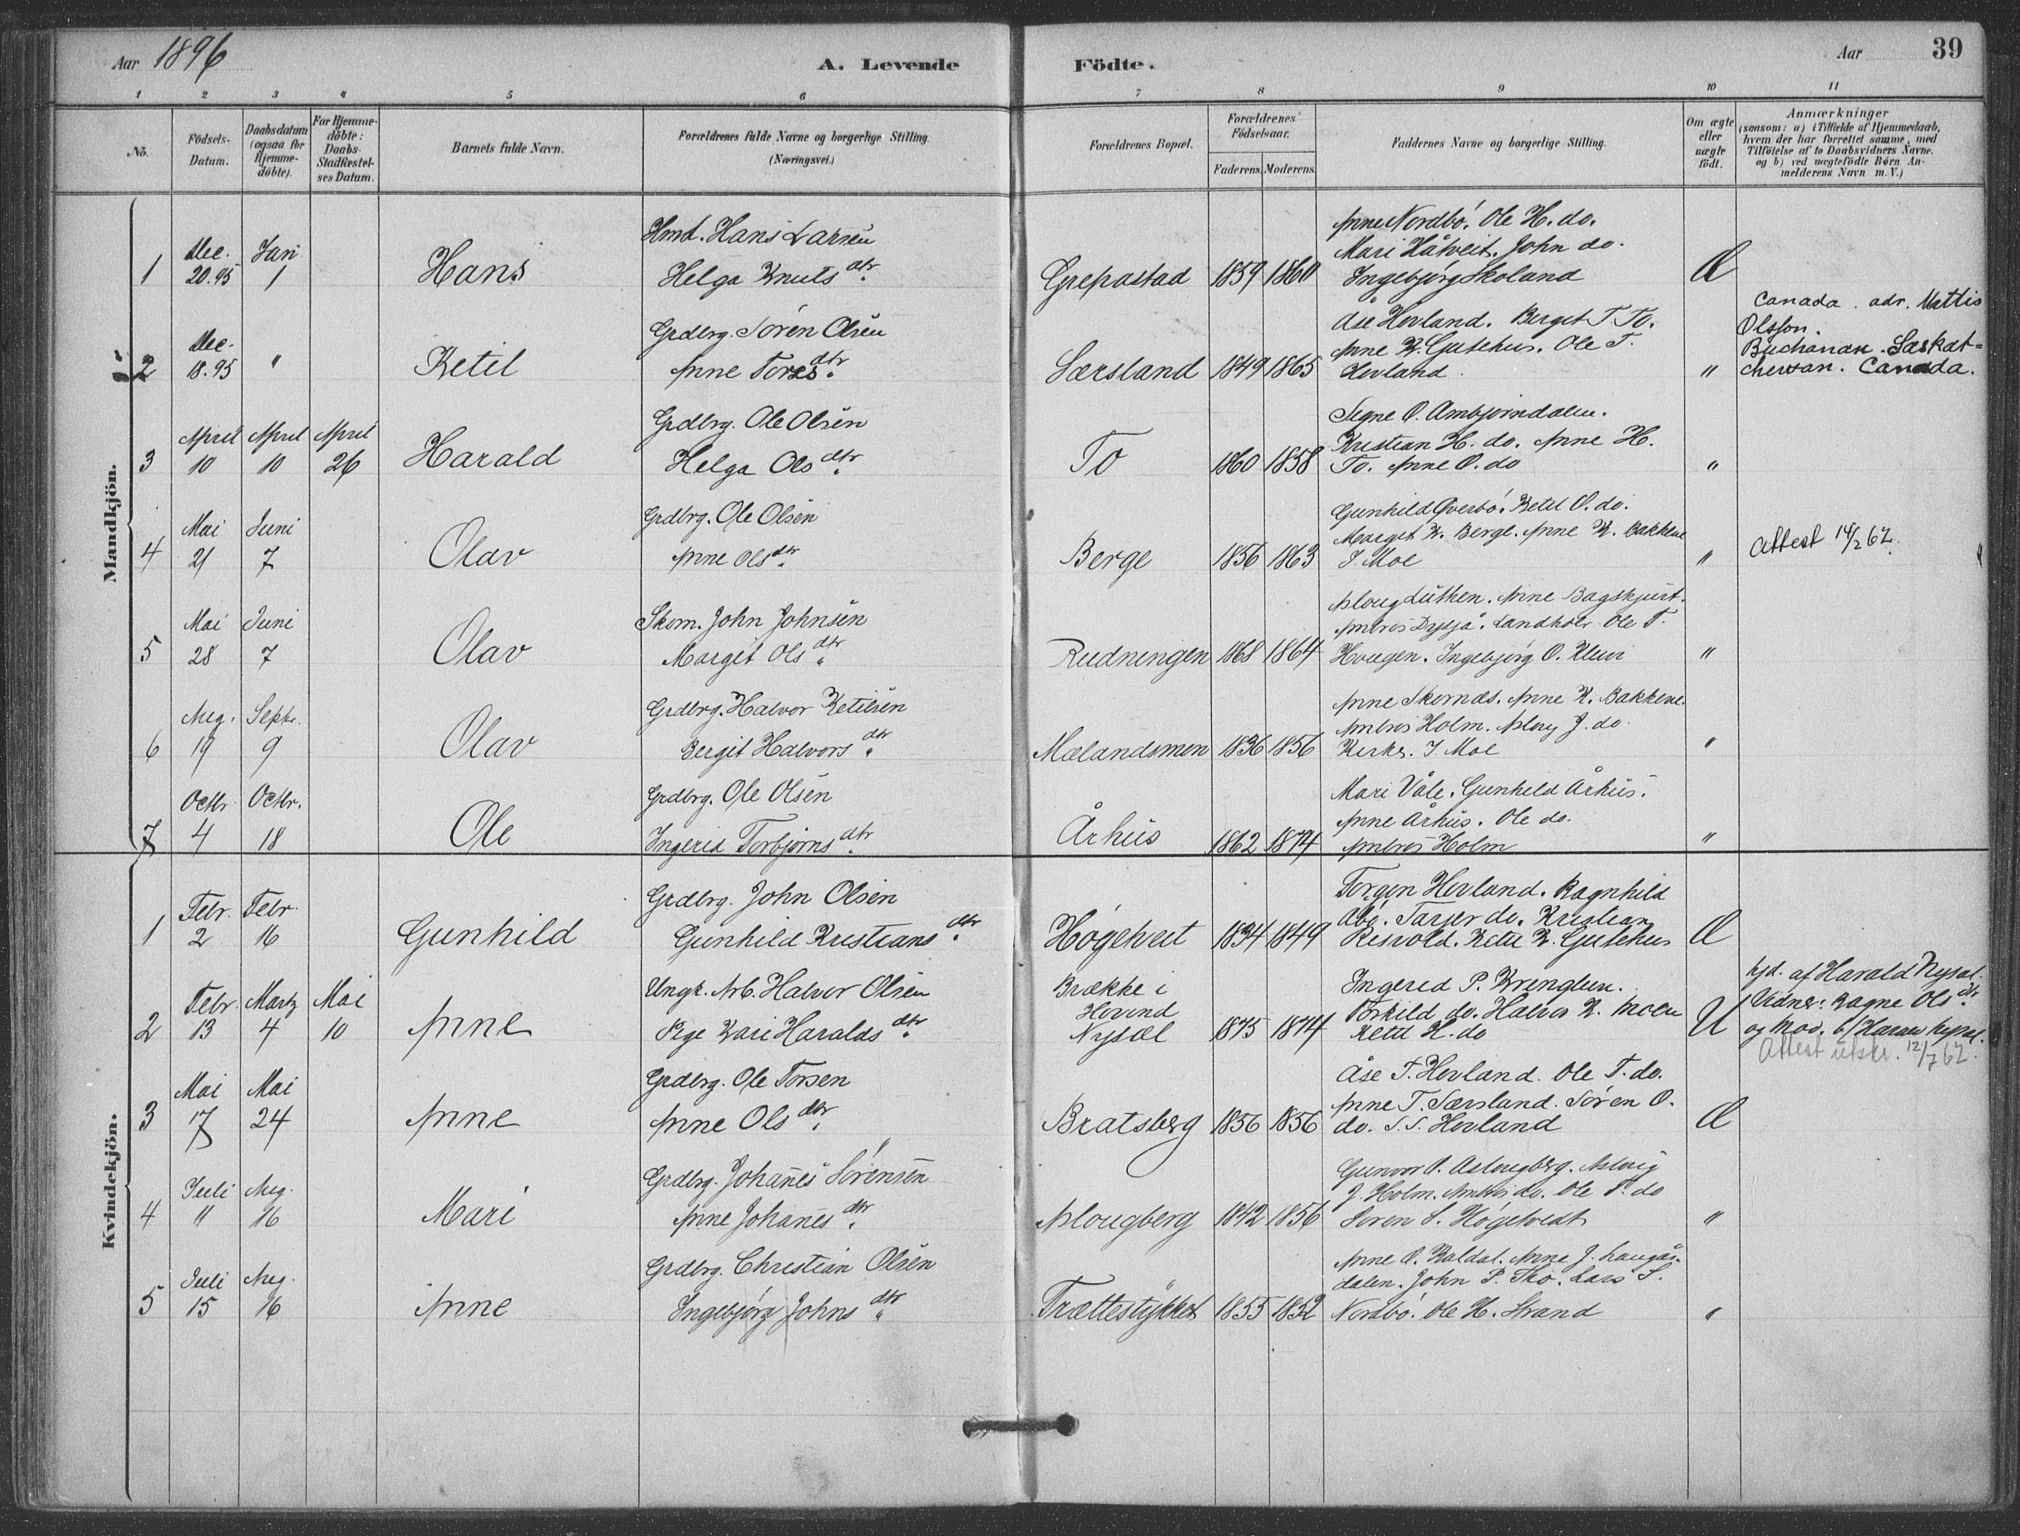 Aar 1896
A. Levende
Födte.
Aar
39
1 2 3 4 5 6 7 8 9 10 11
No.
Födsels-
Datum.
Daabsdatum
(ogsaa for
Hjemme-
döbte).
For Hjemme-
döbte:
Daabs-
Stadfestel-
ses Datum.
Barnets fulde Navn.
Forældrenes fulde Navne og borgerlige Stilling.
(Næringsvei.)
Forældrenes Bopæl.
Forældrenes
Födselsaar.
Faderens. Moderens.
Faddernes Navne og borgerlige Stilling.
Om ægte
eller
uægte
födt.
Anmærkninger
(saasom: a) i Tilfælde af Hjemmedaab,
hvem der har forrettet samme, med
Tilföielse af to Daabsvidners Navne.
og b) ved uægtefödte Börn An-
melderens Navn m. V.)
Mandkjön.
1
Dec. 20.95
Jan. 1
Hans
Hmd. Hans Larsen
Helga Knutsdtr.
Grepastad
1859 1860
Anne Nordbö. Ole H. do.
Mari Håtveit. John do.
Ingebjørg Skoland
Æ
2
Dec. 18.95
"
Ketil
Grdbrg. Søren Olsen
Anne Toresdtr.
Særsland
1849 1865
Åse Hovland. Berget T To.
Anne K. Gutehus. Ole T.
Hovland.
"
Canada. adr. Mattis
Olsson.
Buchanan. Saskat=
chewan. Canada.
3
April 10
April 10
April 26
Harald
Grdbrg. Ole Olsen
Helga Olsdtr.
To
1860 1858
Signe O. Ambjørndalen.
Kristian H. do. Anne H.
To. Anne O. do
"
4
Mai 21
Juni 7
Olav
Grdbrg. Ole Olsen
Anne Olsdtr.
Berge
1856 1863
Gunhild Øverbö. Ketil O. do.
Margit K. Berge. Anne K. Bakkene
J Moe
"
Attest 14/2 62.
5
Mai 28
Juni 7
Olav
Skom. John Johnsen
Margit Olsdtr.
Rudningen
1868 1864
Aloug Luthen. Anne
Ole T.
Haugen. Ingebjørg O. Kleiv
"
6
Aug. 19
Septr. 9
Olav
Grdbrg. Halvor Ketilsen
Bergit Halvorsdtr.
Mælandsmoen
1836 1856
Anne Skornes. Anne K. Bakkene.
Ambros Holm. Aloug J. do.
Kirks. J Moe
"
7
Octbr. 4
Octbr. 18
Ole
Grdbrg. Ole Olsen
Ingerid Torbjørnsdtr.
Århus
1862 1874
Mari Våle. Gunhild Århus.
Anne Århus. Ole do.
Ambros Holm
"
Kvindekjön.
1
Febr. 2
Febr. 16
Gunhild
Grdbrg. John Olsen
Gunhild Kristiansdtr.
Høgetveit
1834 1849
Torgon Hovland. Ragnhild
Åbø. Tarjer do. Kristian
Risvold. Ketil K. Gutehus
Æ
2
Febr. 13
Martz 4
Mai 10
Anne
Ungk. Arb. Halvor Olsen
Pige Kari Haraldsdtr.
Brække i
Hovind
Nysæl
1875 1874
Ingerid P. Kringlen.
Eskild do. Halvor K. Moen
Ketil H. do
U
hjd. af Harald Nysæl.
Vidner: Ragne Olsdtr.
og Mod. b/ Harald Nysæl.
Attest utskr. 12/7 62.
3
Mai 17
Mai 24
Anne
Grdbrg. Ole Torsen
Anne Olsdtr.
Bratsberg
1856 1856
Åse T. Hovland. Ole T. do.
Anne T. Særsland. Søren O.
do. S. S. Hovland
Æ
4
Juli "
Aug. 16
Mari
Grdbrg. Johanes Sørensen
Anne Johanesdtr.
Alougberg
1842 1856
Gunvor O. Aslougberg. Asloug
J. Holm. Ambros do. Ole P. do
Soren S. Høgetvedt
"
5
Juli 15
Aug. 16
Anne
Grdbrg. Christian Olsen
Ingebjørg Johnsdtr.
Trættestykket
1855 1852
Anne O. Kaldal. Anne J. Haugån-
dalen. John P. Sko. Lars S.
Nordbö. Ole H. Strand
"